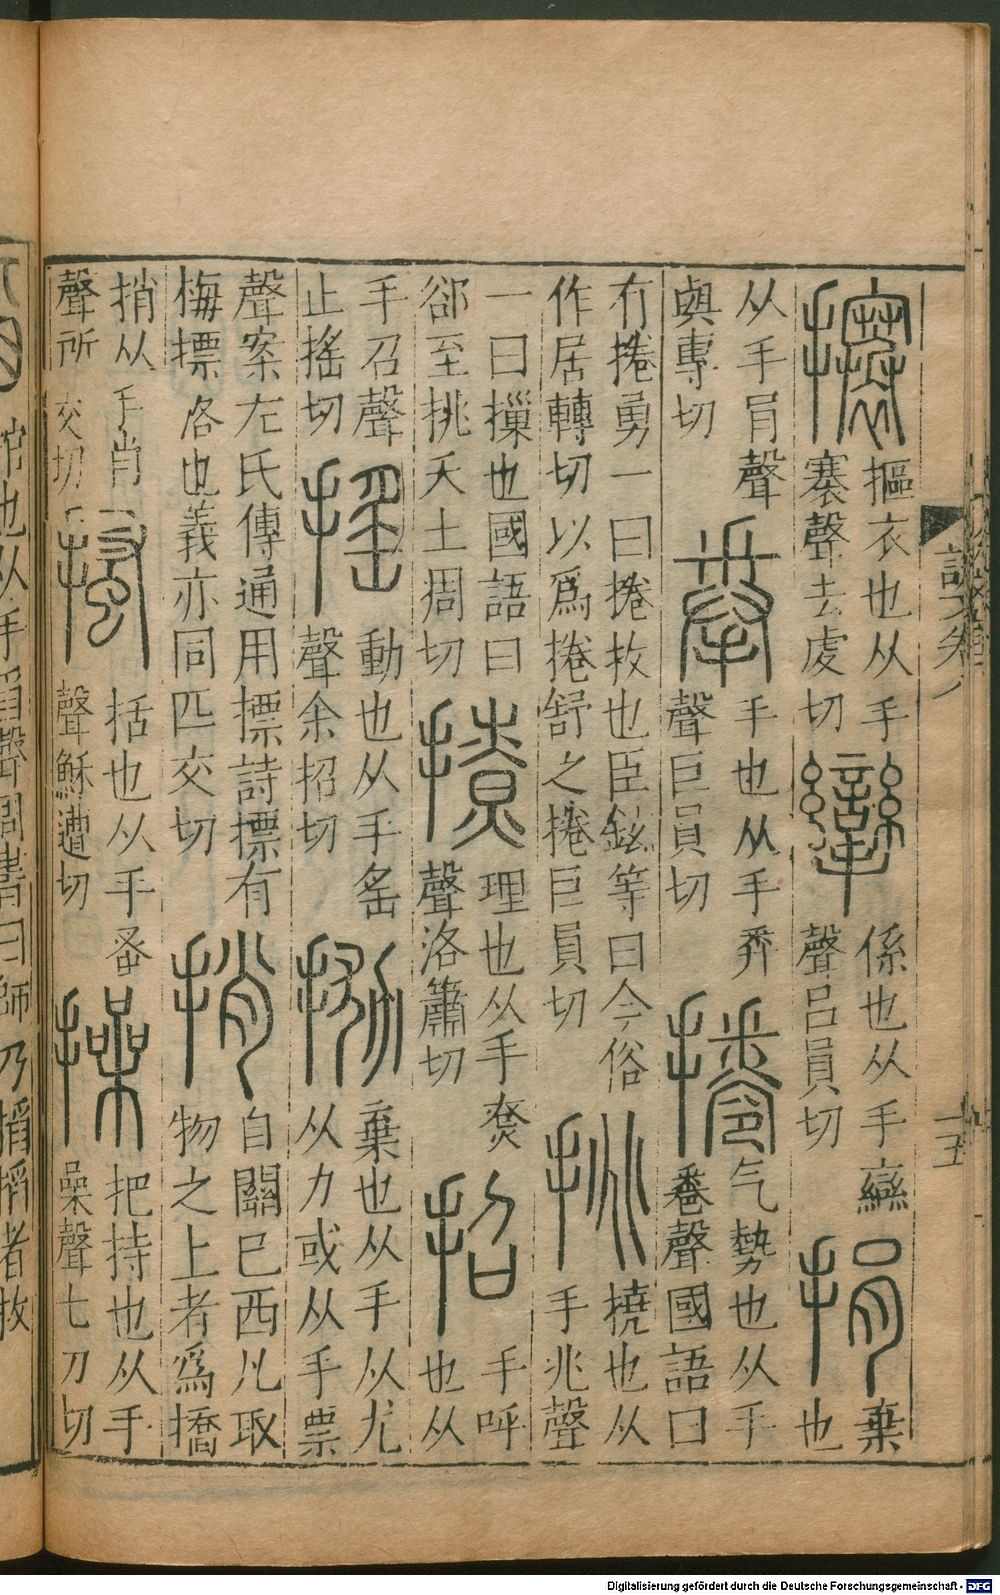 攐
摳衣也从手
褰聲去虔切
攣
係也从手䜌
聲呂員切
捐
棄
也
从手肙聲
與專切
拳
手也从手𢍏
聲巨員切
捲
气勢也从手
卷聲國語曰
有捲勇一曰捲收也臣鉉等曰今俗
作居轉切以爲捲舒之捲巨員切
挑
撓也从
手兆聲
一曰摷也國語曰
郤至挑天土凋切
撩
理也从手尞
聲洛簫切
招
手呼
也从
手召聲
止搖切
搖
動也从手䍃
聲余招切
抛
棄也从手从尤
从力或从手票
聲案左氏傳通用摽詩摽有
梅摽落也義亦同匹交切
捎
自關已西凡取
物之上者爲撟
捎从手肖
聲所交切
搔
括也从手蚤
聲穌遭切
操
把持也从手
喿聲七刀切
捾也从手舀聲周書曰師乃搯搯者拔
Digitalisierung gefördert durch die Deutsche Forschungsgemeinschaft - DFG